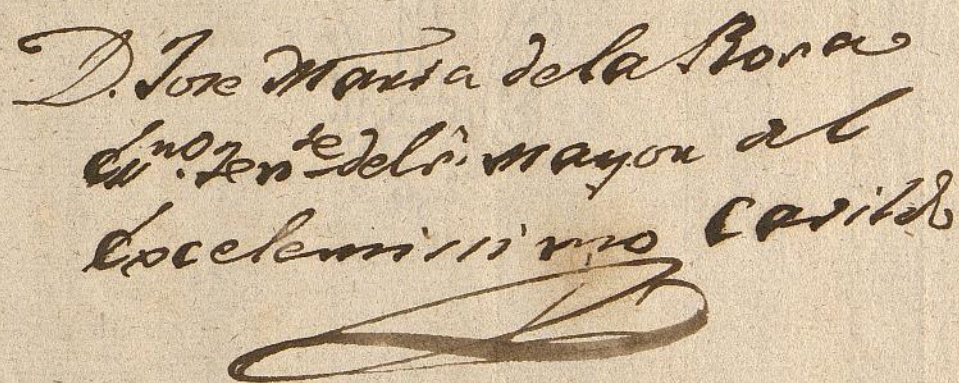 D. Jose Maria de la Rosa
Essno. Tente del r. mayor al
Excelemissimo Cavildo